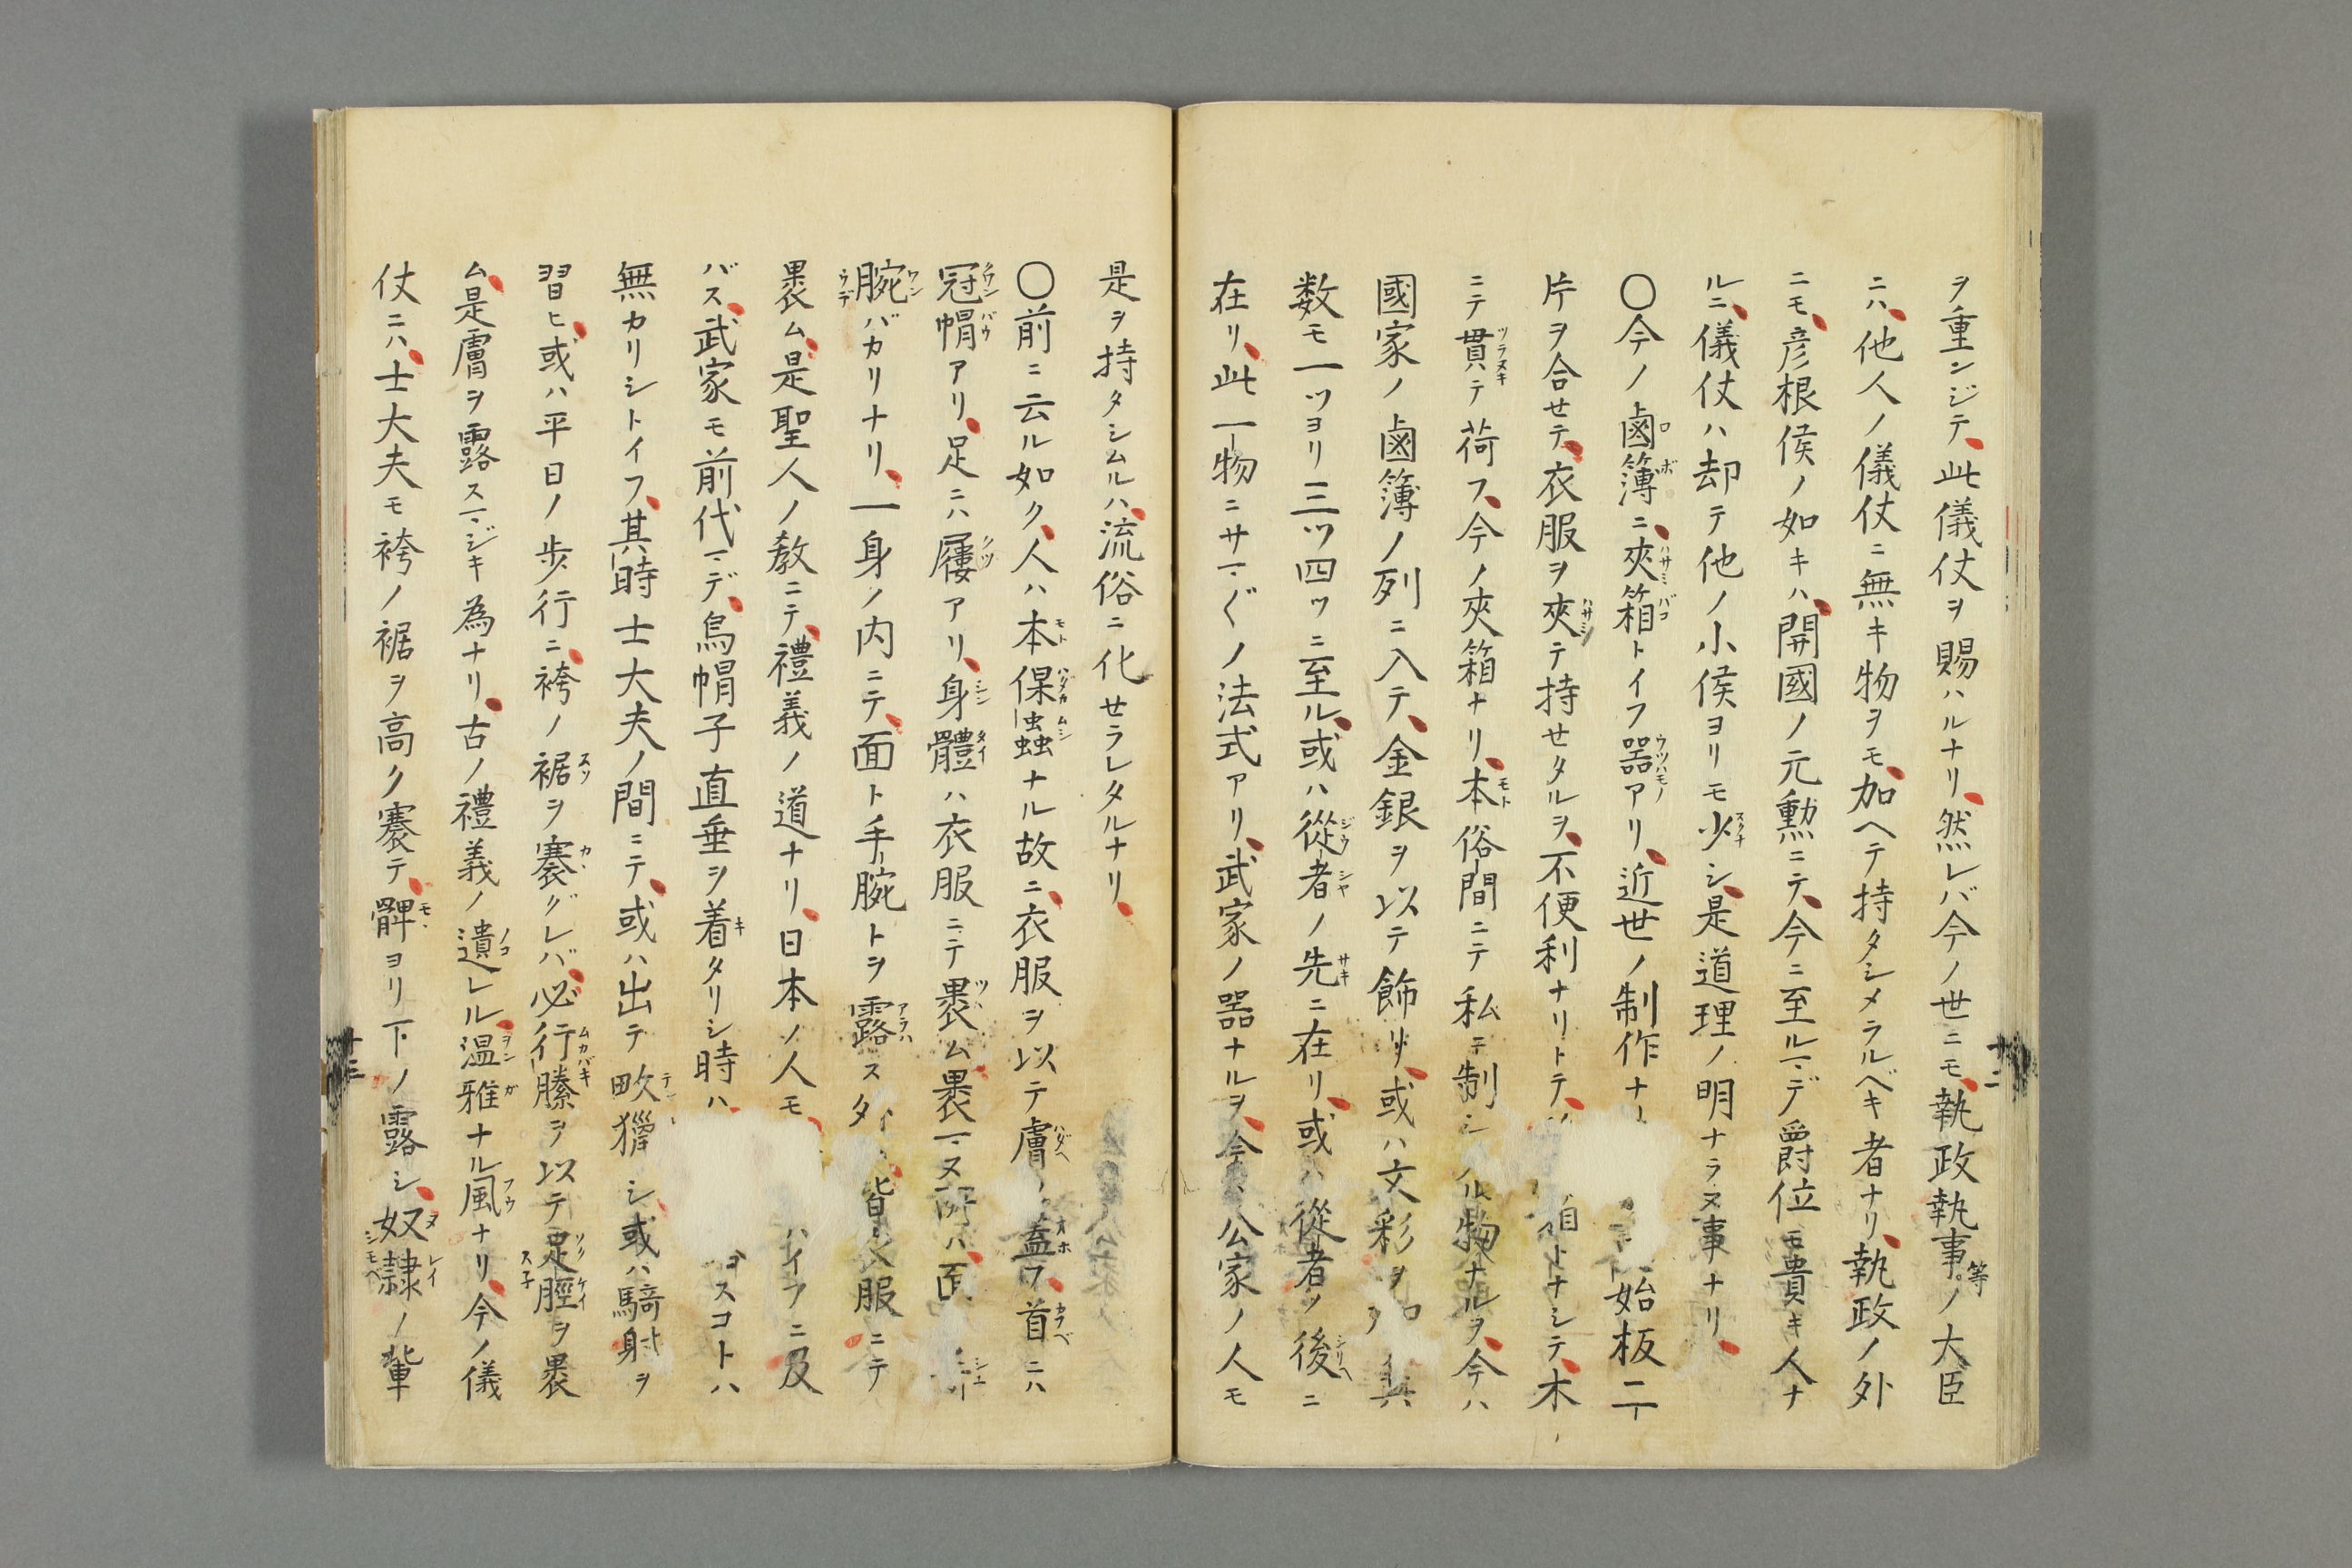 ヲ重ンジテ、此儀仗ヲ賜ハルナリ、然レバ今ノ世ニモ、執政執事等ノ大臣
ニハ、他人ノ儀仗ニ無キ物ヲモ、加ヘテ持タシメラルベキ者ナリ、執政ノ外
ニモ、彦根侯ノ如キハ、開國ノ元勲ニテ、今ニ至ルマデ爵位モ貴キ人ナ
ルニ、儀仗ハ却テ他ノ小侯ヨリモ少シ、是道理ノ明ナラヌ事ナリ、
〇今ノ鹵簿ニ、夾箱トイフ器アリ、近世ノ制作ナ 始板二
片ヲ合セテ、衣服ヲ夾テ持セタルヲ、不便利ナリトテ、 トナシテ、木
ニテ貫テ荷フ、今ノ夾箱ナリ、本俗間ニテ私ニ制シ ル物ナルヲ、今ハ
國家ノ鹵簿ノ列ニ入テ、金銀ヲ以テ飾リ、或ハ文彩ヲ 其
数モ一ツヨリ三ツ四ツニ至ル、或ハ從者ノ先ニ在リ、或ハ從者ノ後ニ
在リ、此一物ニサマ〲ノ法式アリ、武家ノ器ナルヲ、今ハ公家ノ人モ
是ヲ持タシムルハ、流俗ニ化セラレタルナリ、
〇前ニ云ル如ク、人ハ本保蟲ナル故ニ、衣服ヲ以テ膚ヲ蓋フ、首ニハ
冠帽アリ、足ニハ屨アリ、身體ハ衣服ニテ褁ム、褁マヌ所ハ、面
腕バカリナリ、一身ノ内ニテ、面ト手腕トヲ露スタ 皆衣服ニテ
褁ム、是聖人ノ教ニテ、禮義ノ道ナリ、日本ノ人モ、 ハイフニ及
バス、武家モ前代マデ、烏帽子直垂ヲ着タリシ時ハ、 スコトハ
無カリシトイフ、其時士大夫ノ間ニテ、或ハ出テ畋獵シ、或ハ騎射ヲ
習ヒ、或ハ平日ノ歩行ニ、袴ノ裾ヲ褰グレバ、必行縢ヲ以テ足脛ヲ褁
ム、是膚ヲ露スマジキ為ナリ、古ノ禮義ノ遺レル温雅ナル風ナリ、今ノ儀
仗ニハ、士大夫モ袴ノ裾ヲ高ク褰テ、髀ヨリ下ノ露シ、奴隷ノ輩
十二
十三